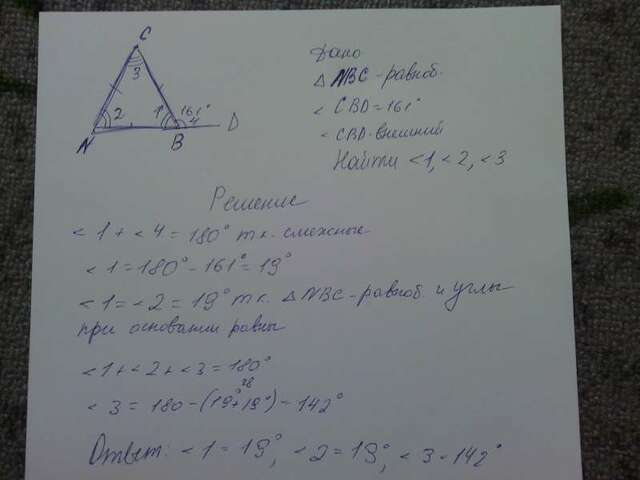 C
3
2
1
161°
4
N
B
D
Дано
△ NBC - равноб.
< CBD = 161°
< CBD - внешний
Найти < 1, < 2, < 3
Решение
< 1 + < 4 = 180° т.к. смежные
< 1 = 180° - 161° = 19°
< 1 = < 2 = 19° т.к. △ NBC - равноб. и углы
при основании равны
< 1 + < 2 + < 3 = 180°
38
< 3 = 180 - (19° + 19°) = 142°
Ответ: < 1 = 19°, < 2 = 19°, < 3 = 142°